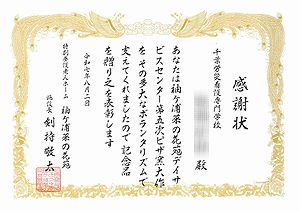 感謝状
千葉労災看護専門学校
殿
あなたは袖ケ浦菜の花苑デイサ
ービスセンター第五次ピザ窯大作
をその多大なボランタリズムで
支えてくれましたので記念品
を贈り之を表彰します
令和七年八月二日
特別養護老人ホーム
袖ケ浦菜の花苑
施設長 剣持敬太